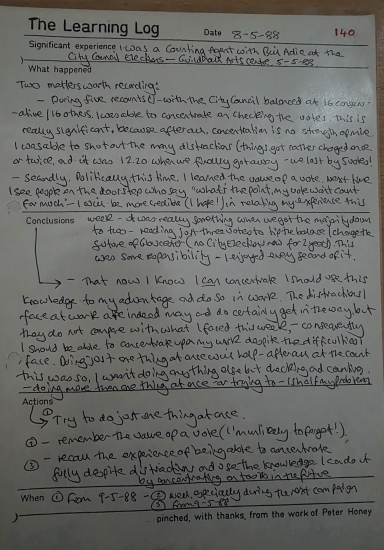 The Learning Log
Date 8-5-88
149
Significant experience I was a Counting Agent with Bill Adie at the
City Council Elections - Guildhall Arts Centre 5-5-88.
What happened
Two matters worth recording:
- During five recounts() - with the City Council balanced at 16 conserv-
-ative/16 others, I was able to concentrate on checking the votes. This is
really significant, because after all, concentration is no strength of mine
I was able to shut out the many distractions (things got rather charged once
or twice, and it was 12.20 when we finally got away - we lost by 5 votes!
- Secondly, Politically, this time, I learned the value of a vote. Next time
I see people on the doorstep who say "what's the point, my vote won't count
for much" - I will be more credible (I hope!) in relating my experience this
Conclusions
week - it was really something when we got the majority down
to two - needing just three votes to tip the balance & change the
future of Gloucester (no City Election now for 2 years) This
was some responsibility - I enjoyed every second of it.
- That now I know I can concentrate I should use this
knowledge to my advantage and do so in work. The distractions I
face at work are indeed many and do certainly get in the way, but
they do not compare with what I faced this week, - consequently
I should be able to concentrate upon my work despite the difficulties I
face. Doing just one thing at once will help - after all at the count
this was so, I wasn't doing anything else but checking and counting,
- doing more than one thing at once - or trying to - is half my problem
Actions
① Try to do just one thing at once.
② - remember the value of a vote (I'm unlikely to forget!).
③ - recall the experience of being able to concentrate
fully despite distractions and use the knowledge I can do it
by concentrating on tasks in the future
When ① from 9-5-88 - ② well, especially during the next campaign
③ from 9-5-88
...pinched, with thanks, from the work of Peter Honey